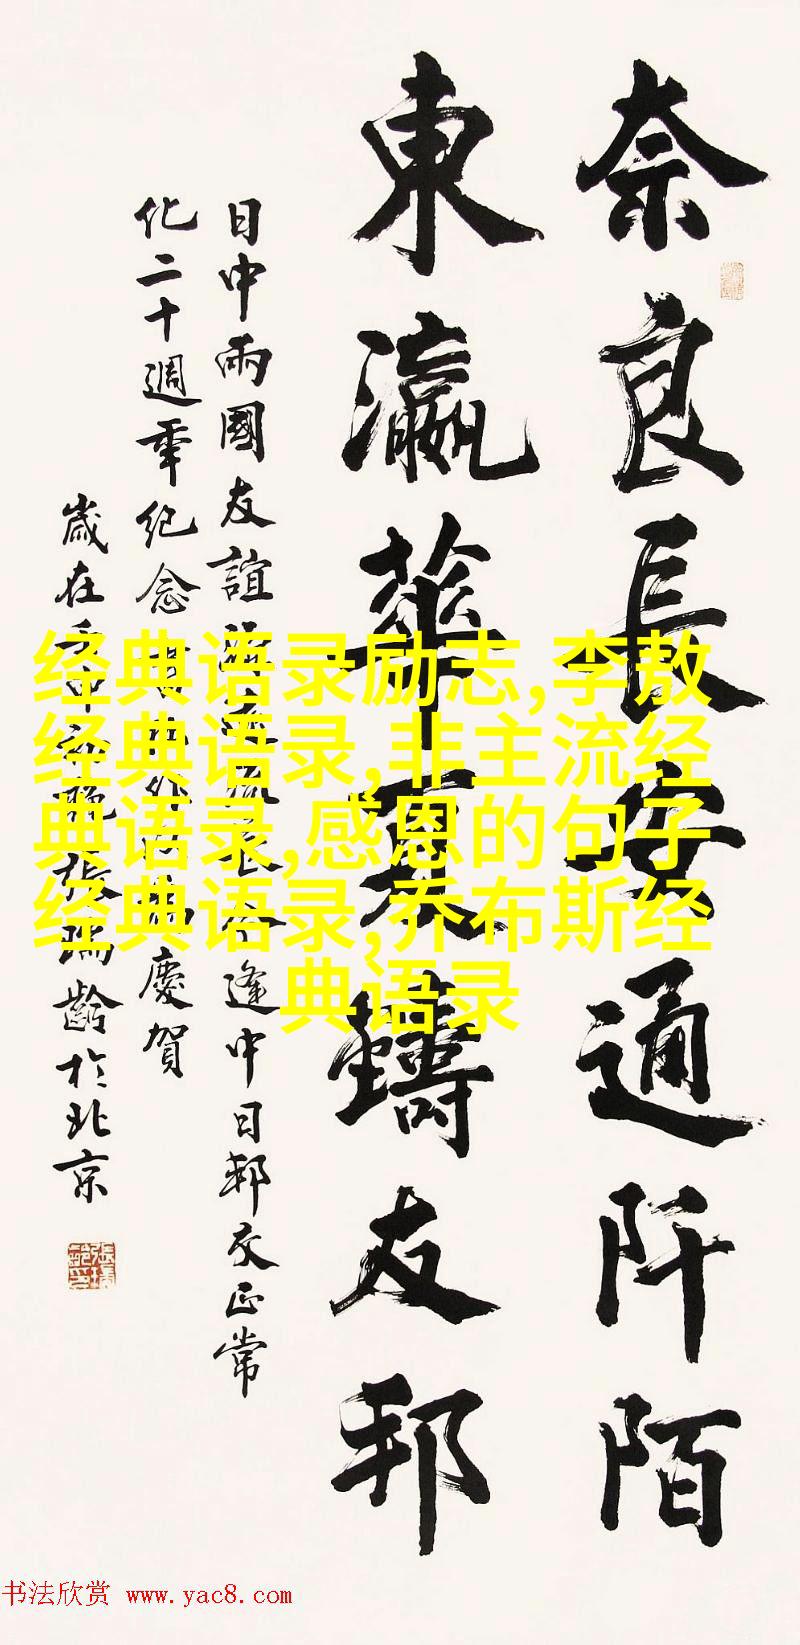 奈良長安通阡陌
東瀛華夏鑄友邦
日中兩國友誼源遠流長今逢中日邦交正常
化二十週年紀念
慶賀
歲在壬申
張瑞齡於北京
经典语录励志,李敖
经典语录,非主流经
典语录,感恩的句子
经典语录,乔布斯经
典语录
书法欣赏 www.yac8.com